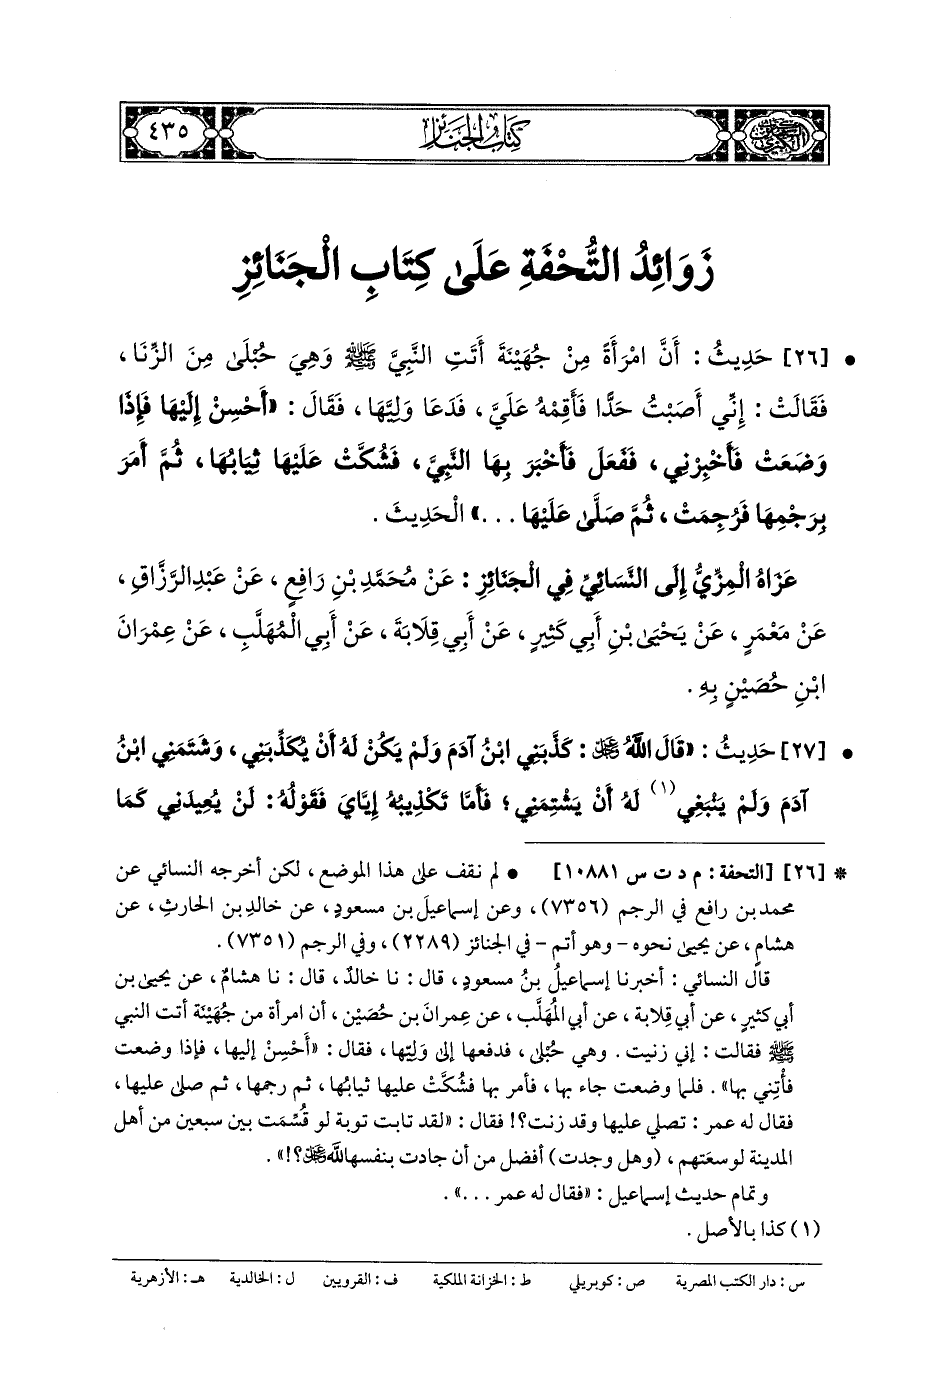 ٤٣٥
كتاب الجنائز
زَوَائِدُ التُّحْفَةِ عَلَىٰ كِتَابِ الْجَنَائِزِ
• [٢٦] حَدِيثُ : أَنَّ امْرَأَةً مِنْ جُهَيْنَةَ أَتَتِ النَّبِيَّ ﷺ وَهِيَ حُبْلَىٰ مِنَ الزِّنَا ،
فَقَالَتْ : إِنِّي أَصَبْتُ حَدًّا فَأَقِمْهُ عَلَيَّ ، فَدَعَا وَلِيَّهَا ، فَقَالَ : «أَحْسِنْ إِلَيْهَا فَإِذَا
وَضَعَتْ فَأَخْبِرْنِي ، فَفَعَلَ فَأَخْبَرَ بِهَا النَّبِيَّ ، فَشُكَّتْ عَلَيْهَا ثِيَابُهَا ، ثُمَّ أَمَرَ
بِرَجْمِهَا فَرُجِمَتْ ، ثُمَّ صَلَّىٰ عَلَيْهَا . . .» الْحَدِيثَ .
عَزَاهُ الْمِزِّيُّ إِلَى النَّسَائِيِّ فِي الْجَنَائِزِ : عَنْ مُحَمَّدِ بْنِ رَافِعٍ ، عَنْ عَبْدِ الرَّزَّاقِ ،
عَنْ مَعْمَرٍ ، عَنْ يَحْيَىٰ بْنِ أَبِي كَثِيرٍ ، عَنْ أَبِي قِلَابَةَ ، عَنْ أَبِي الْمُهَلَّبِ ، عَنْ عِمْرَانَ
ابْنِ حُصَيْنٍ بِهِ .
• [٢٧] حَدِيثُ : «قَالَ اللَّهُ ﷻ : كَذَّبَنِي ابْنُ آدَمَ وَلَمْ يَكُنْ لَهُ أَنْ يُكَذِّبَنِي ، وَشَتَمَنِي ابْنُ
آدَمَ وَلَمْ يَنْبَغِي (١) لَهُ أَنْ يَشْتِمَنِي ؛ فَأَمَّا تَكْذِيبُهُ إِيَّايَ فَقَوْلُهُ : لَنْ يُعِيدَنِي كَمَا
* [٢٦] [التحفة : م د ت س ١٠٨٨١] • لم نقف على هذا الموضع ، لكن أخرجه النسائي عن
محمد بن رافع في الرجم (٧٣٥٦) ، وعن إسماعيل بن مسعودٍ ، عن خالدِ بن الحارثِ ، عن
هشامٍ ، عن يحيى نحوه - وهو أتم - في الجنائز (٢٢٨٩) ، وفي الرجم (٧٣٥١) .
قال النسائي : أخبرنا إسماعيلُ بنُ مسعودٍ ، قال : نا خالدٌ ، قال : نا هشامٌ ، عن يحيى بن
أبي كثيرٍ ، عن أبي قِلابة ، عن أبي المُهَلَّب ، عن عِمرانَ بن حُصَيْن ، أن امرأة من جُهَيْنَة أتت النبي
ﷺ فقالت : إني زنيت . وهي حُبْلى ، فدفعها إلى وَلِيّها ، فقال : «أَحْسِنْ إليها ، فإذا وضعت
فأتني بها» . فلما وضعت جاء بها ، فأمر بها فشُكَّتْ عليها ثيابُها ، ثم رجمها ، ثم صلى عليها ،
فقال له عمر : تصلي عليها وقد زنت؟! فقال : «لقد تابت توبة لو قُسِّمَت بين سبعين من أهل
المدينة لوسعَتهم ، (وهل وجدت) أفضل من أن جادت بنفسها لله ﷻ؟!» .
وتمام حديث إسماعيل : «فقال له عمر . . .» .
(١) كذا بالأصل .
س : دار الكتب المصرية ص : كوبريلي ط : الخزانة الملكية ف : القرويين ل : الخالدية هـ : الأزهرية